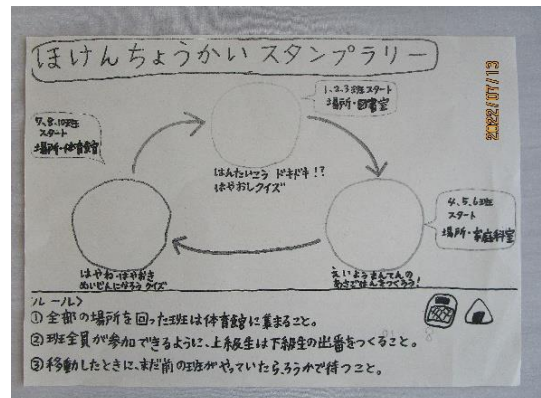 ほけんちょうかい スタンプラリー
2022/07/13
1、2、3班スタート
場所・図書室
7、8、10班
スタート
場所・体育館
はんたいこう ドキドキ!?
はやおしクイズ
4、5、6班
スタート
場所・家庭科室
はやね・はやおき
めいじんになろう クイズ
えいようまんてんの
あさごはんをつくろう!
ルール〉
①全部の場所を回った班は体育館に集まること。
②班全員が参加できるように、上級生は下級生の出番をつくること。
③移動したときに、まだ前の班がやっていたら、ろうかで待つこと。